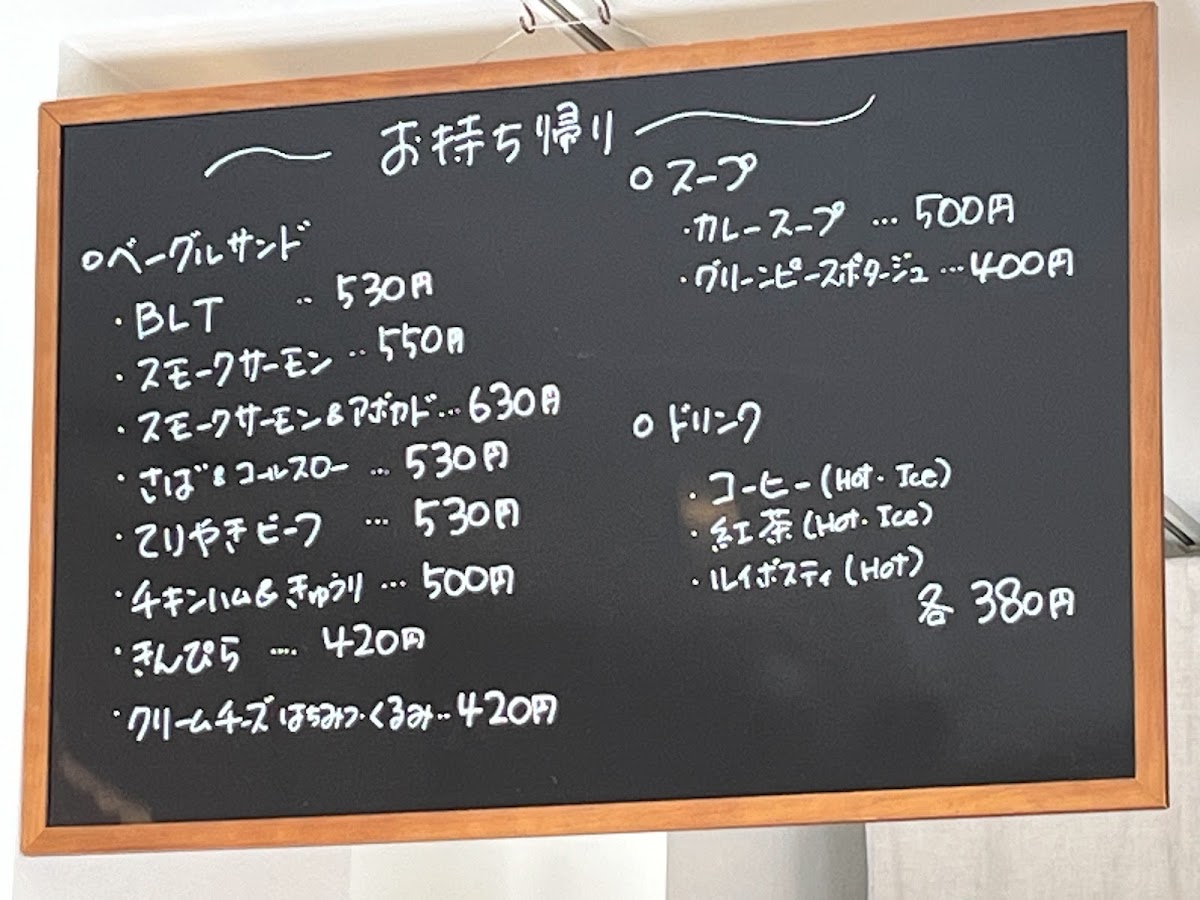 お持ち帰り
○ベーグルサンド
・BLT ‥ 530円
・スモークサーモン ‥ 550円
・スモークサーモン&アボカド… 630円
・さば&コールスロー … 530円
・てりやきビーフ … 530円
・チキンハム&きゅうり … 500円
・きんぴら …. 420円
・クリームチーズはちみつ・くるみ‥ 420円
○スープ
・カレースープ … 500円
・グリーンピースポタージュ … 400円
○ドリンク
・コーヒー(Hot・Ice)
・紅茶(Hot・Ice)
・ルイボスティ(Hot)
各 380円